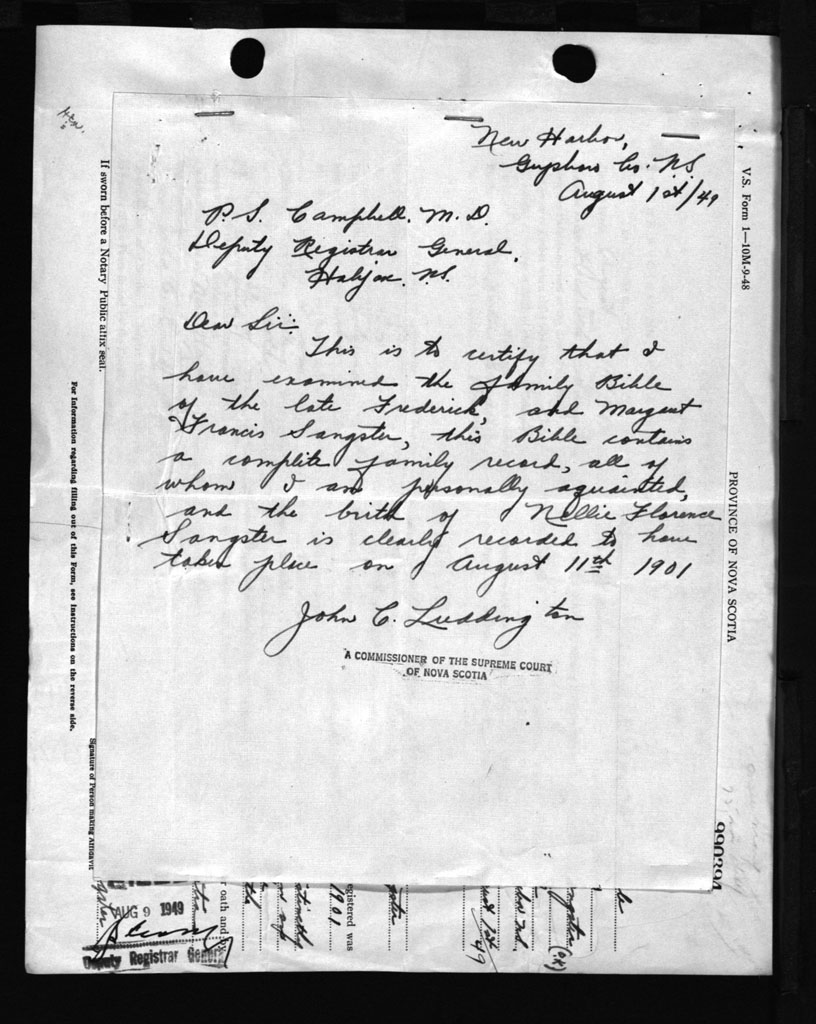 New Harbor,
Guysboro Co. N.S.
August 1st/49
P.S. Campbell. M.D.
Deputy Registrar General,
Halifax. N.S.
Dear Sir:
This is to certify that I
have examined the family Bible
of the late Frederick, and Margaret
Francis Sangster, this Bible contains
a complete family record, all of
whom I am personally aquainted,
and the birth of Nellie Florence
Sangster is clearly recorded to have
taken place on August 11th 1901
John C. Luddington
A COMMISSIONER OF THE SUPREME COURT
OF NOVA SCOTIA
V.S. Form 1—10M-9-48
PROVINCE OF NOVA SCOTIA
If sworn before a Notary Public affix seal.
For Information regarding filling out of this Form, see Instructions on the reverse side.
Signature of Person making Affidavit
AUG 9 1949
Deputy Registrar General
oath and
egistered was
1901.